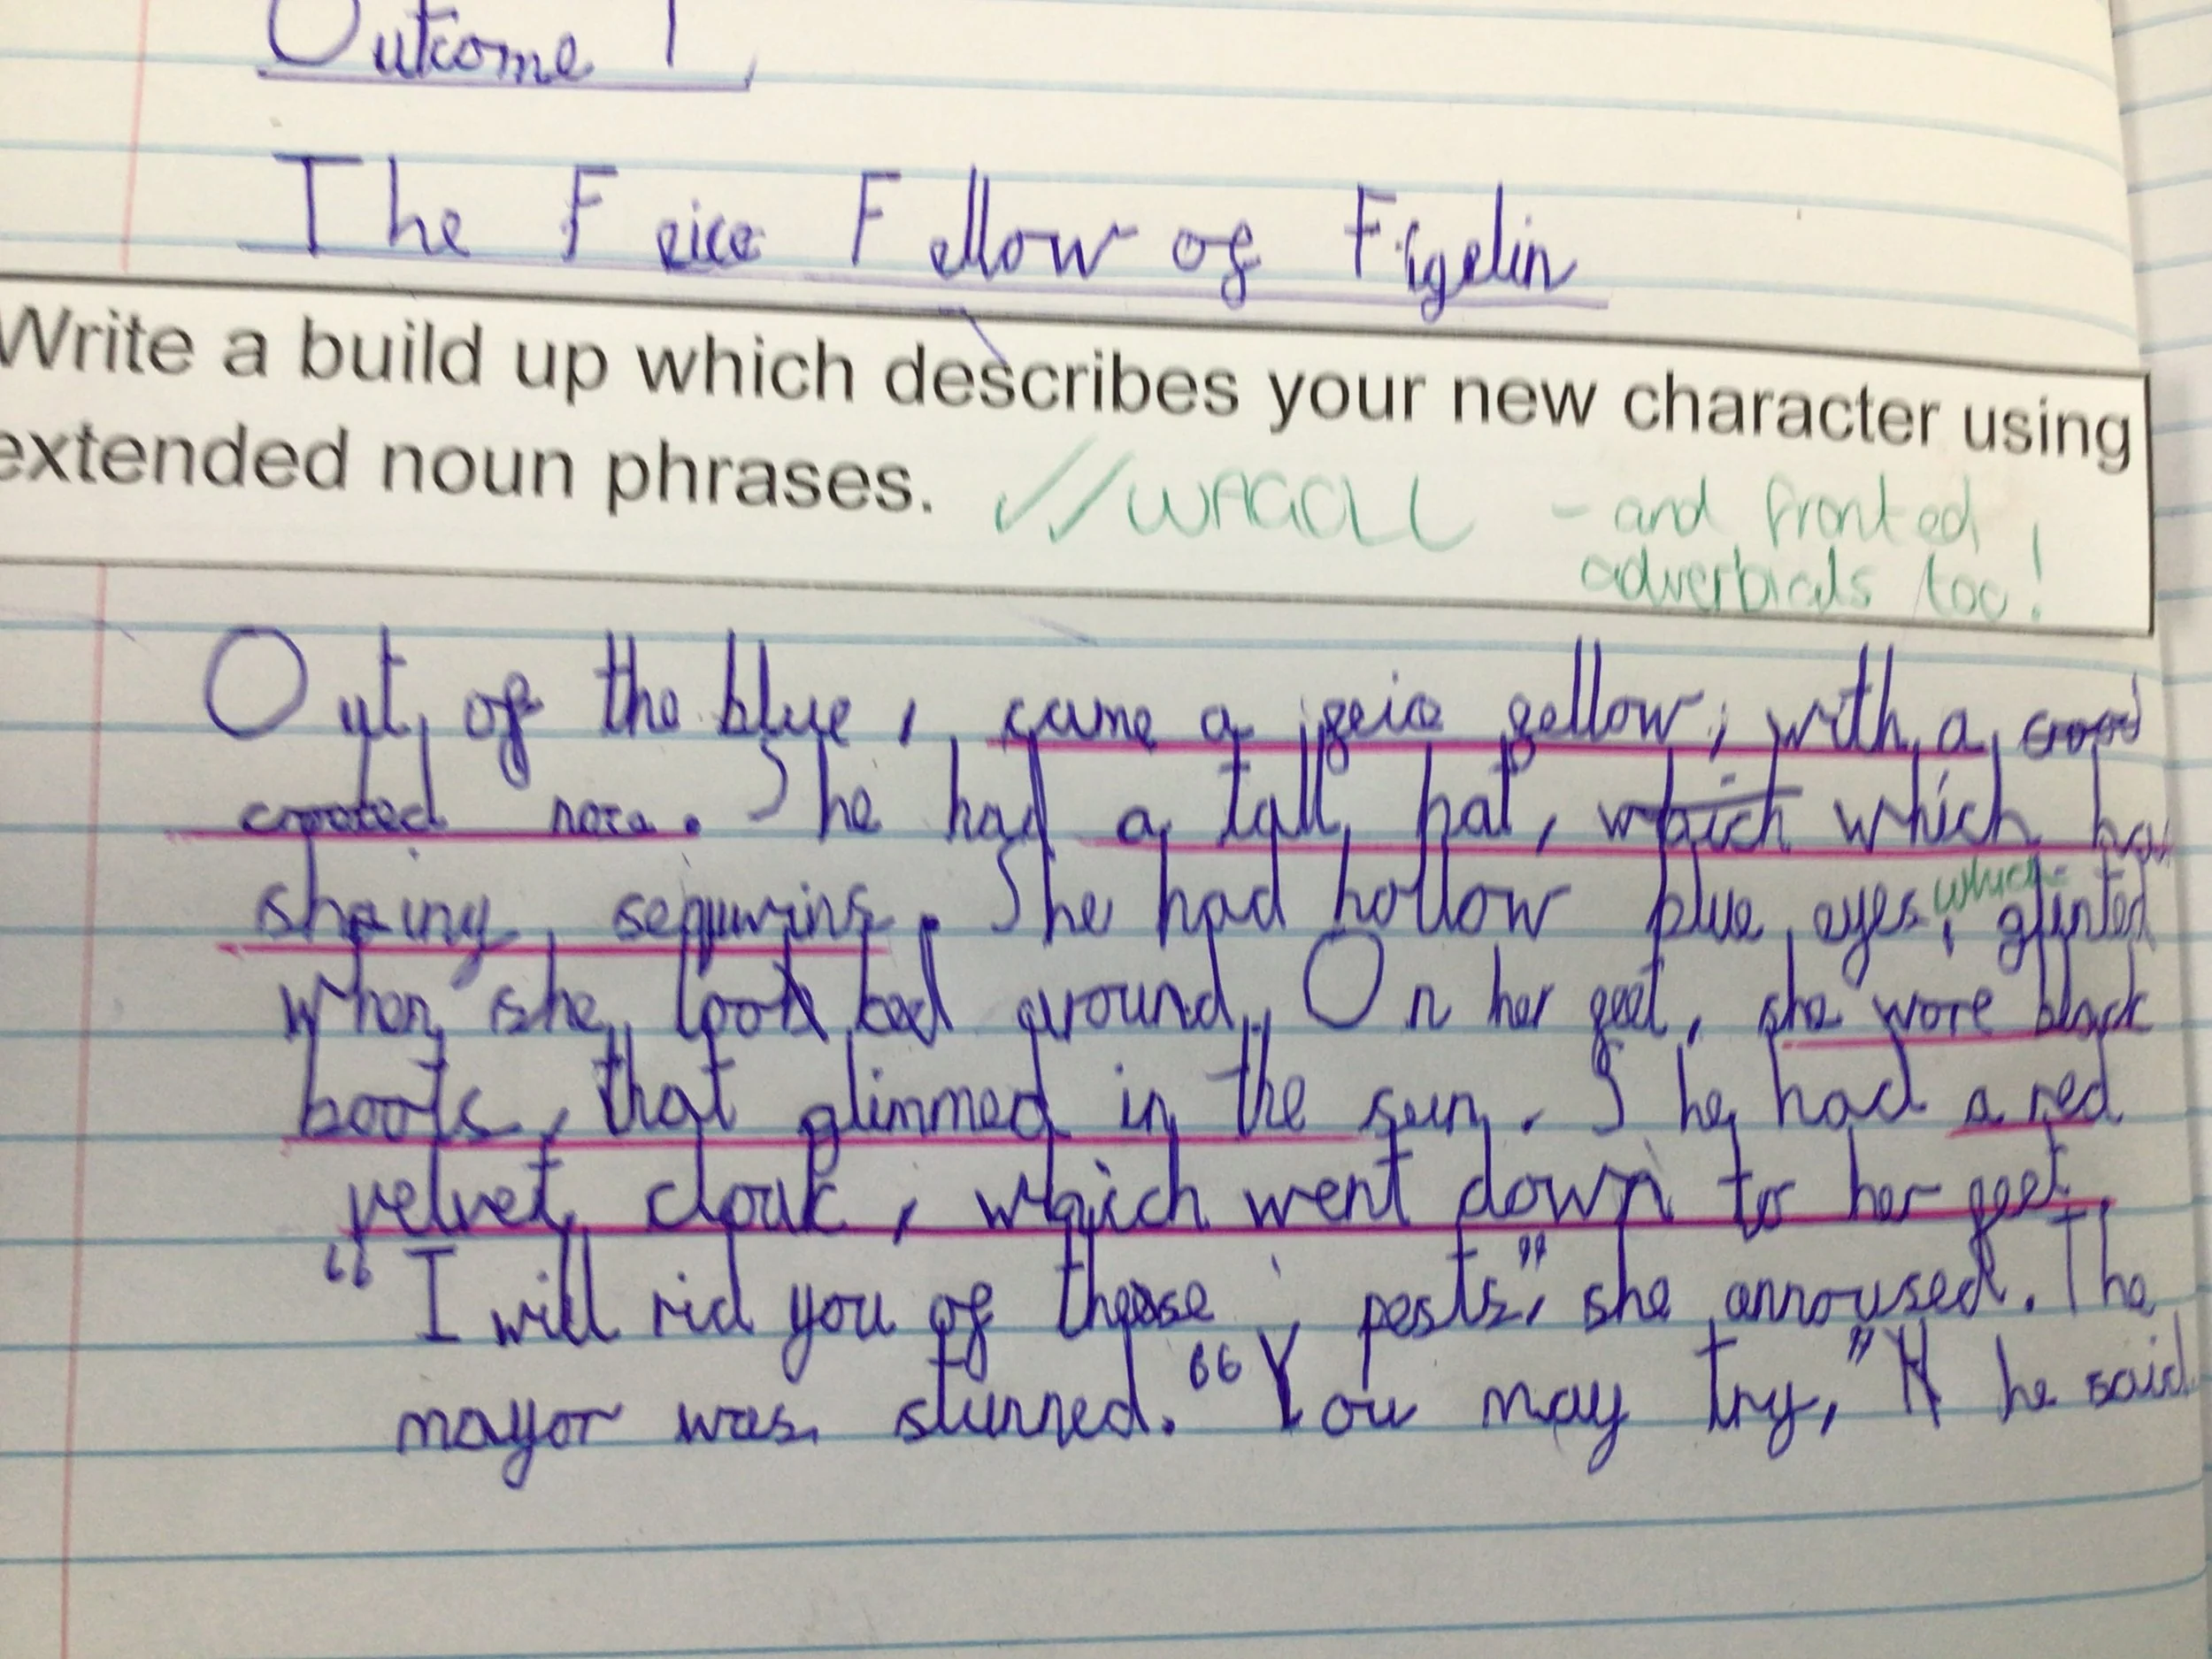 Outcome 1
The Feice Fellow of Figelin
Write a build up which describes your new character using
extended noun phrases. WAGOLL - and fronted
adverbials too!
Out of the blue, came a feice fellow, with a
crooted nose. She had a tall hat, which which had
shaing sequwins. She had hollow blue eyes, which glinted
when she looked around. On her feet, she wore black
boots, that glimmed in the sun. She had a red
velvet cloak, which went down to her feet.
"I will rid you of these pests," she annoused. The
mayor was stunned. "You may try," he said